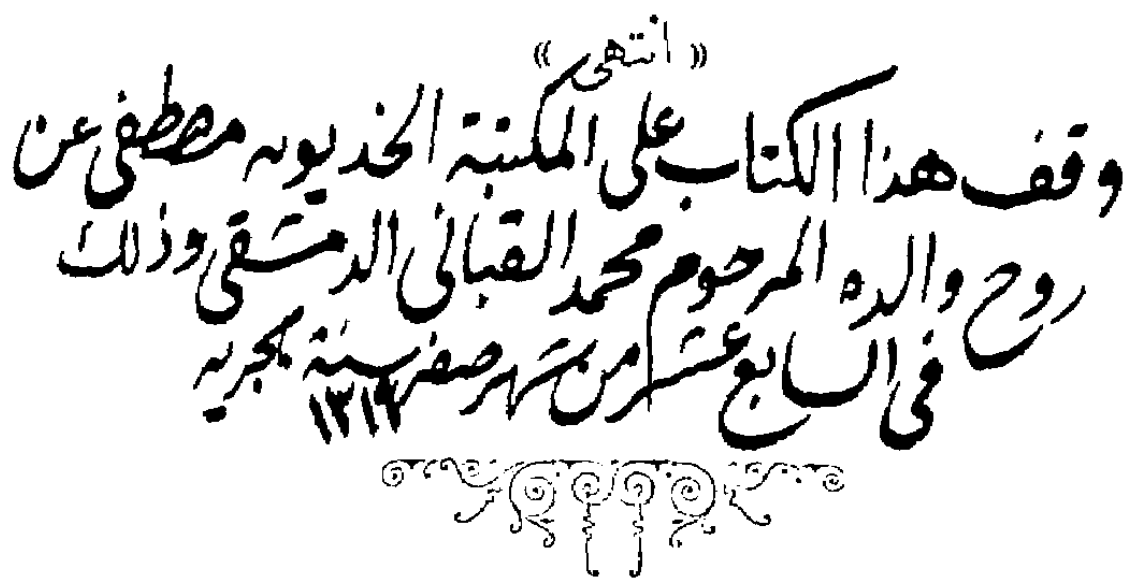 « انتهى »
وقف هذا الكتاب على المكتبة الخديويه مصطفى عن
روح والده المرحوم محمد القبانى الدمشقى وذلك
فى السابع عشر من شهر صفر سنة هجريه